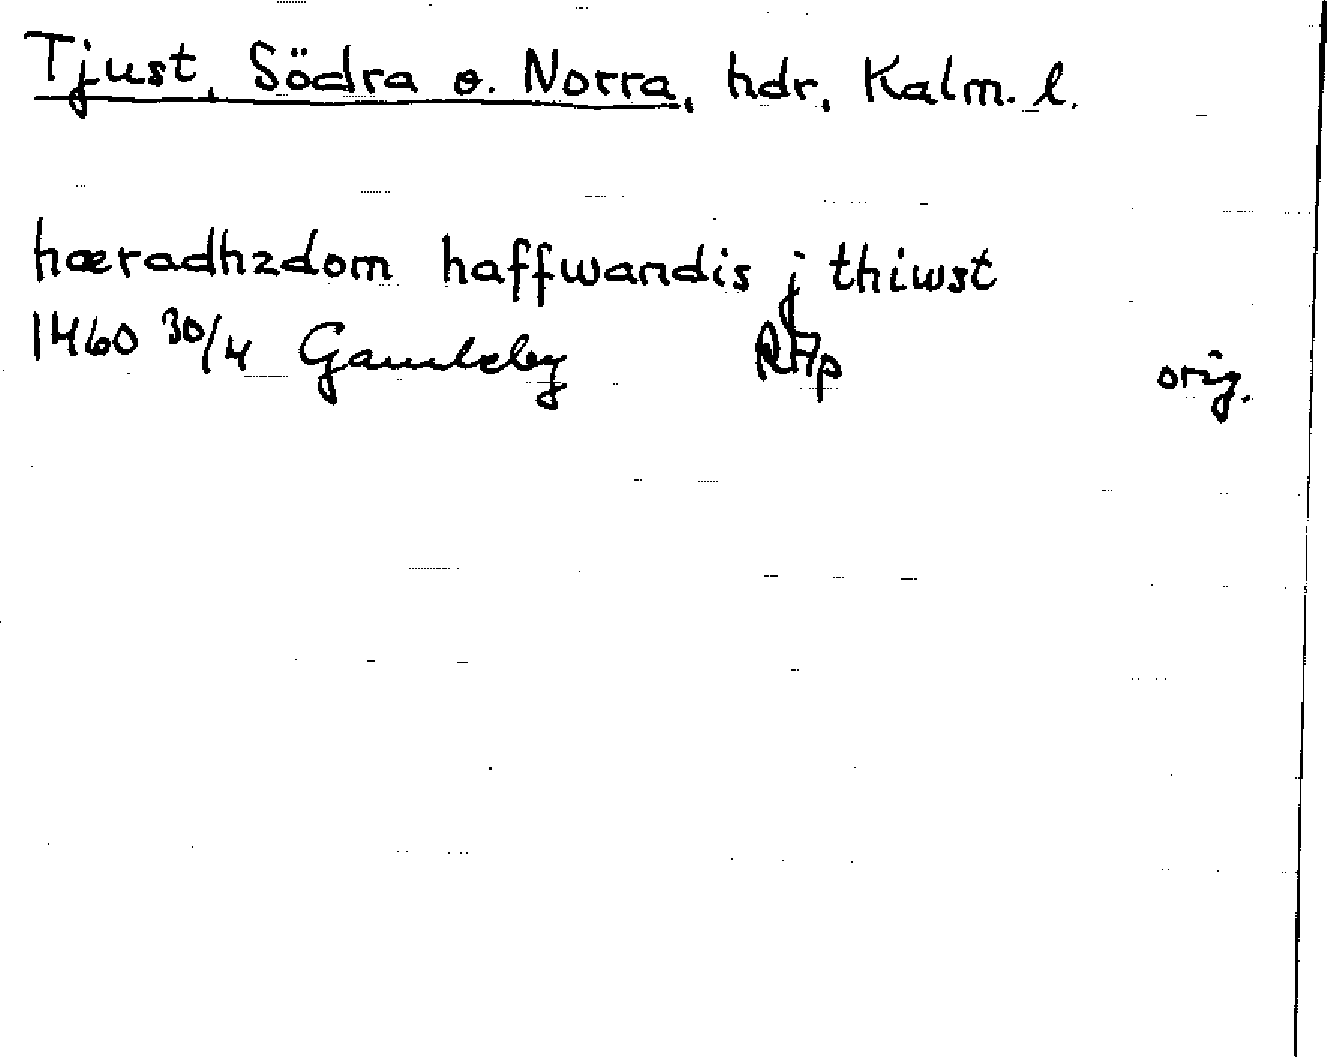 Tjust, Södra o. Norra, hdr, Kalm. l.
hæradhzdom haffwandis j thiwst
1460 30/4 Gamleby RAp orig.